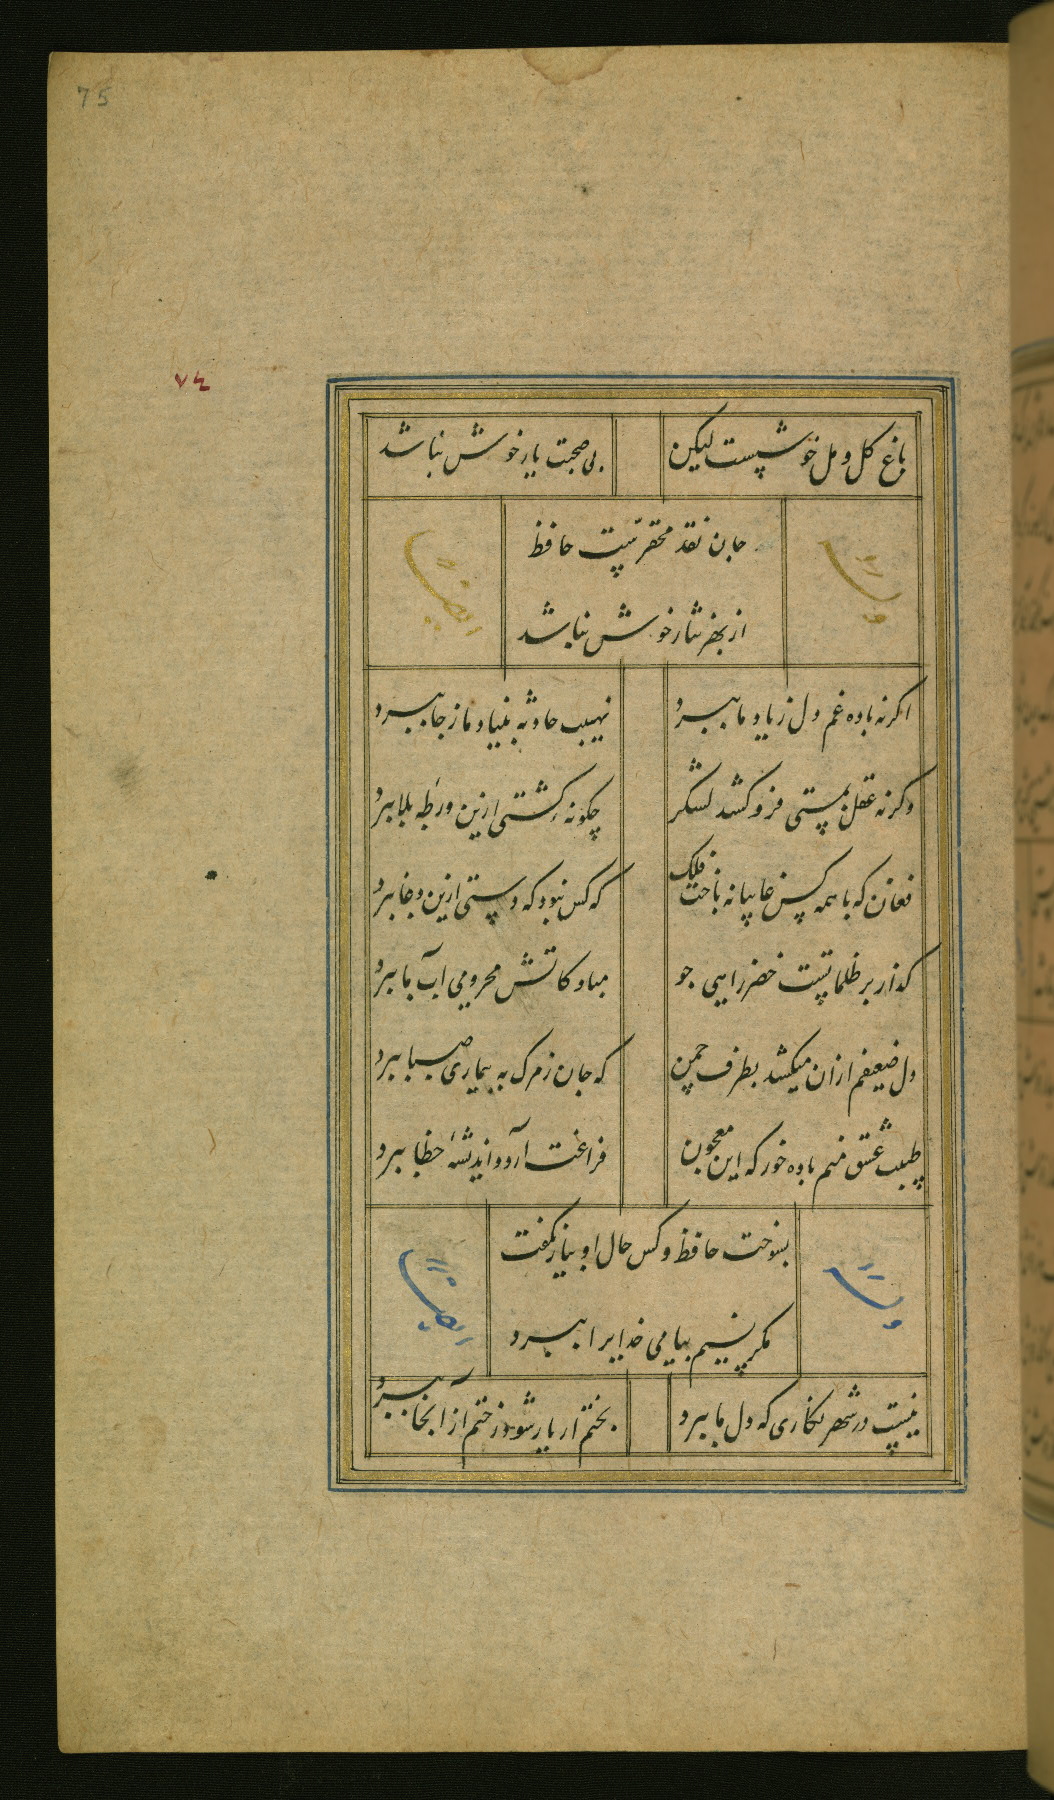 75
۷۴
باغ کل و مل خوشست لیکن
بی صحبت یار خوش نباشد
جان نقد محقرست حافظ
از بهر نثار خوش نباشد
اکر نه باده غم دل ز یاد ما ببرد
نهیب حادثه بنیاد ما ز جا ببرد
وکر نه عقل بمستی فرو کشد لنکر
چکونه کشتی ازین ورطه بلا ببرد
فغان که با همه کس غایبانه باخت فلک
که کس نبود که دستی ازین دغا ببرد
کذار بر ظلماتست خضر راهی جو
مباد کاتش محرومی آب ما ببرد
دل ضعیفم از آن میکشد بطرف چمن
که جان ز مرک به بیماری صبا ببرد
طبیب عشق منم باده خور که این معجون
فراغت آرد و اندیشه خطا ببرد
بسوخت حافظ و کس حال او بیار نکفت
مکر نسیم پیامی خدایرا ببرد
نیست در شهر نکاری که دل ما ببرد
بختم ار یار شود رختم از اینجا ببرد